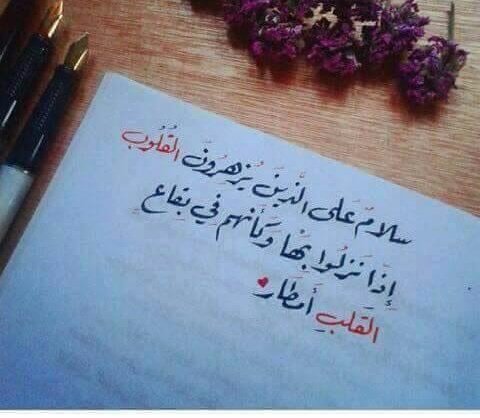 سلامٌ عَلى الَّذينَ يُزهِرُونَ القُلُوب
إِذَا نَزلُوا بِهَا وَكأنهم في بِقاعِ
القَلبِ أَمطَار